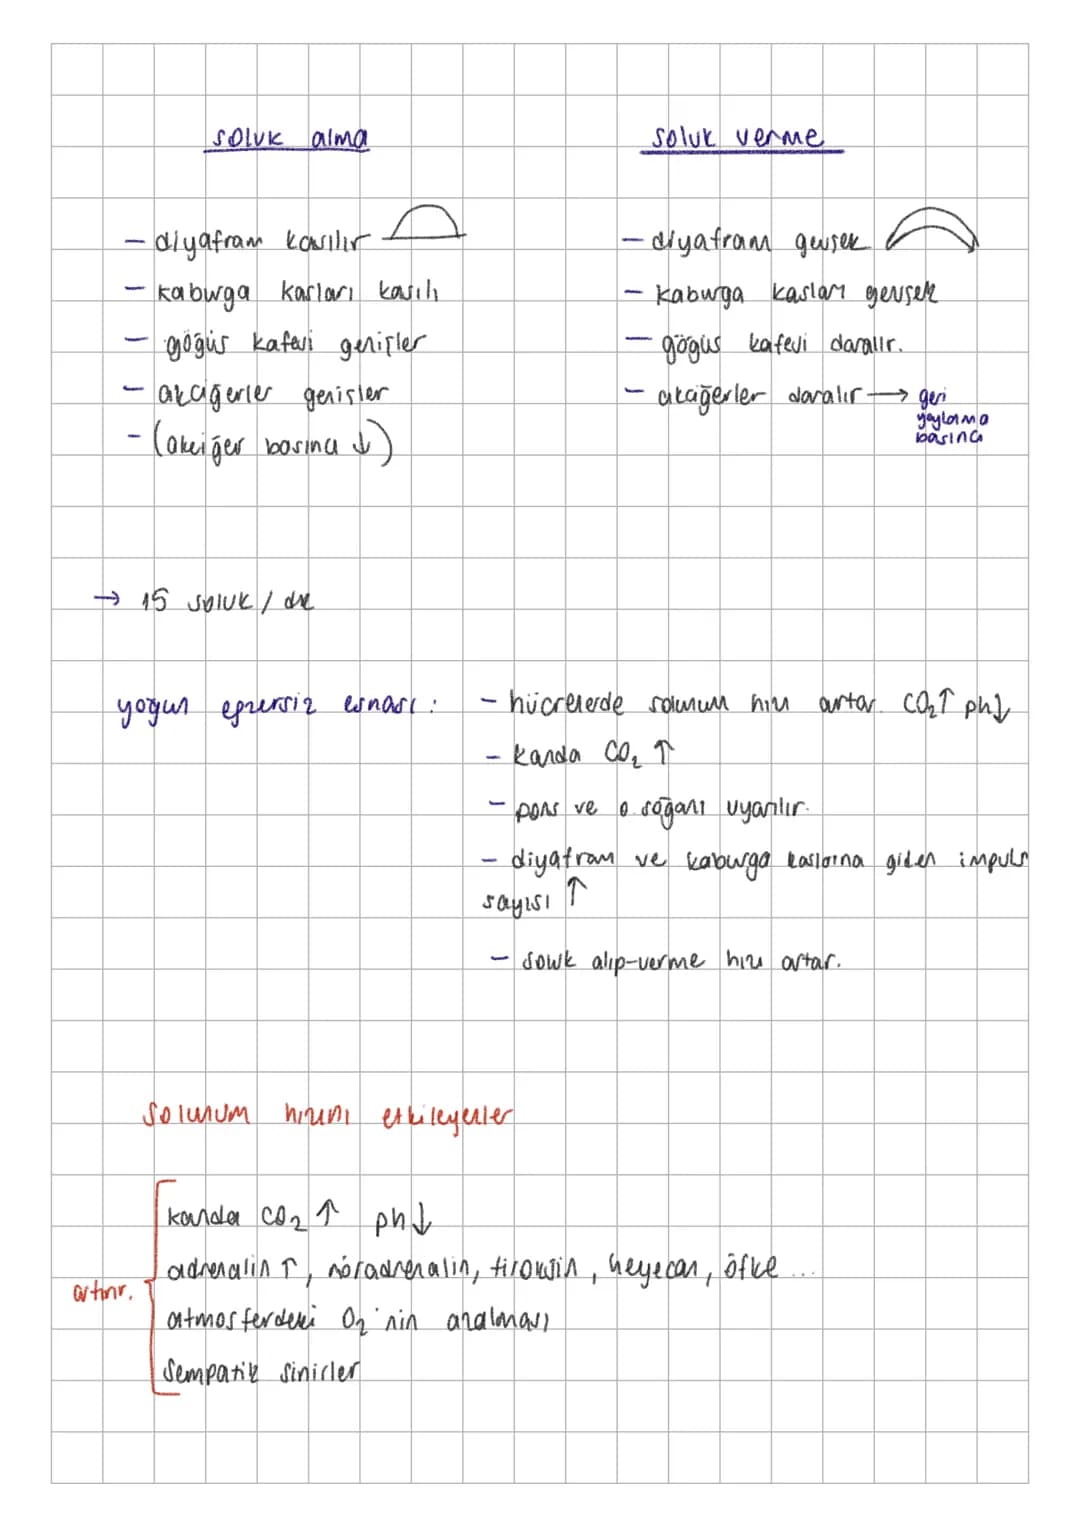 soluk alma
- diyafram kasılır
- kaburga kasları kasılı
- göğüs kafesi genişler
- akciğerler genişler
- (akciğer basıncı ↓)
soluk verme
- diyafram gevşek
- kaburga kasları gevşek
- göğüs kafesi daralır.
- akciğerler daralır → geri
yaylanma
basıncı
→ 15 soluk / dk
yoğun egzersiz esnası :
- hücrelerde solunum hızı artar. CO₂↑ ph↓
- kanda CO₂ ↑
- pons ve o.soğanı uyarılır.
- diyafram ve kaburga kaslarına giden impuls
sayısı ↑
- soluk alıp-verme hızı artar.
solunum hızını etkileyenler
artırır.
kanda CO₂ ↑ ph↓
adrenalin ↑, nöradrenalin, tiroksin, heyecan, öfke ...
atmosferdeki O₂'nin azalması
sempatik sinirler